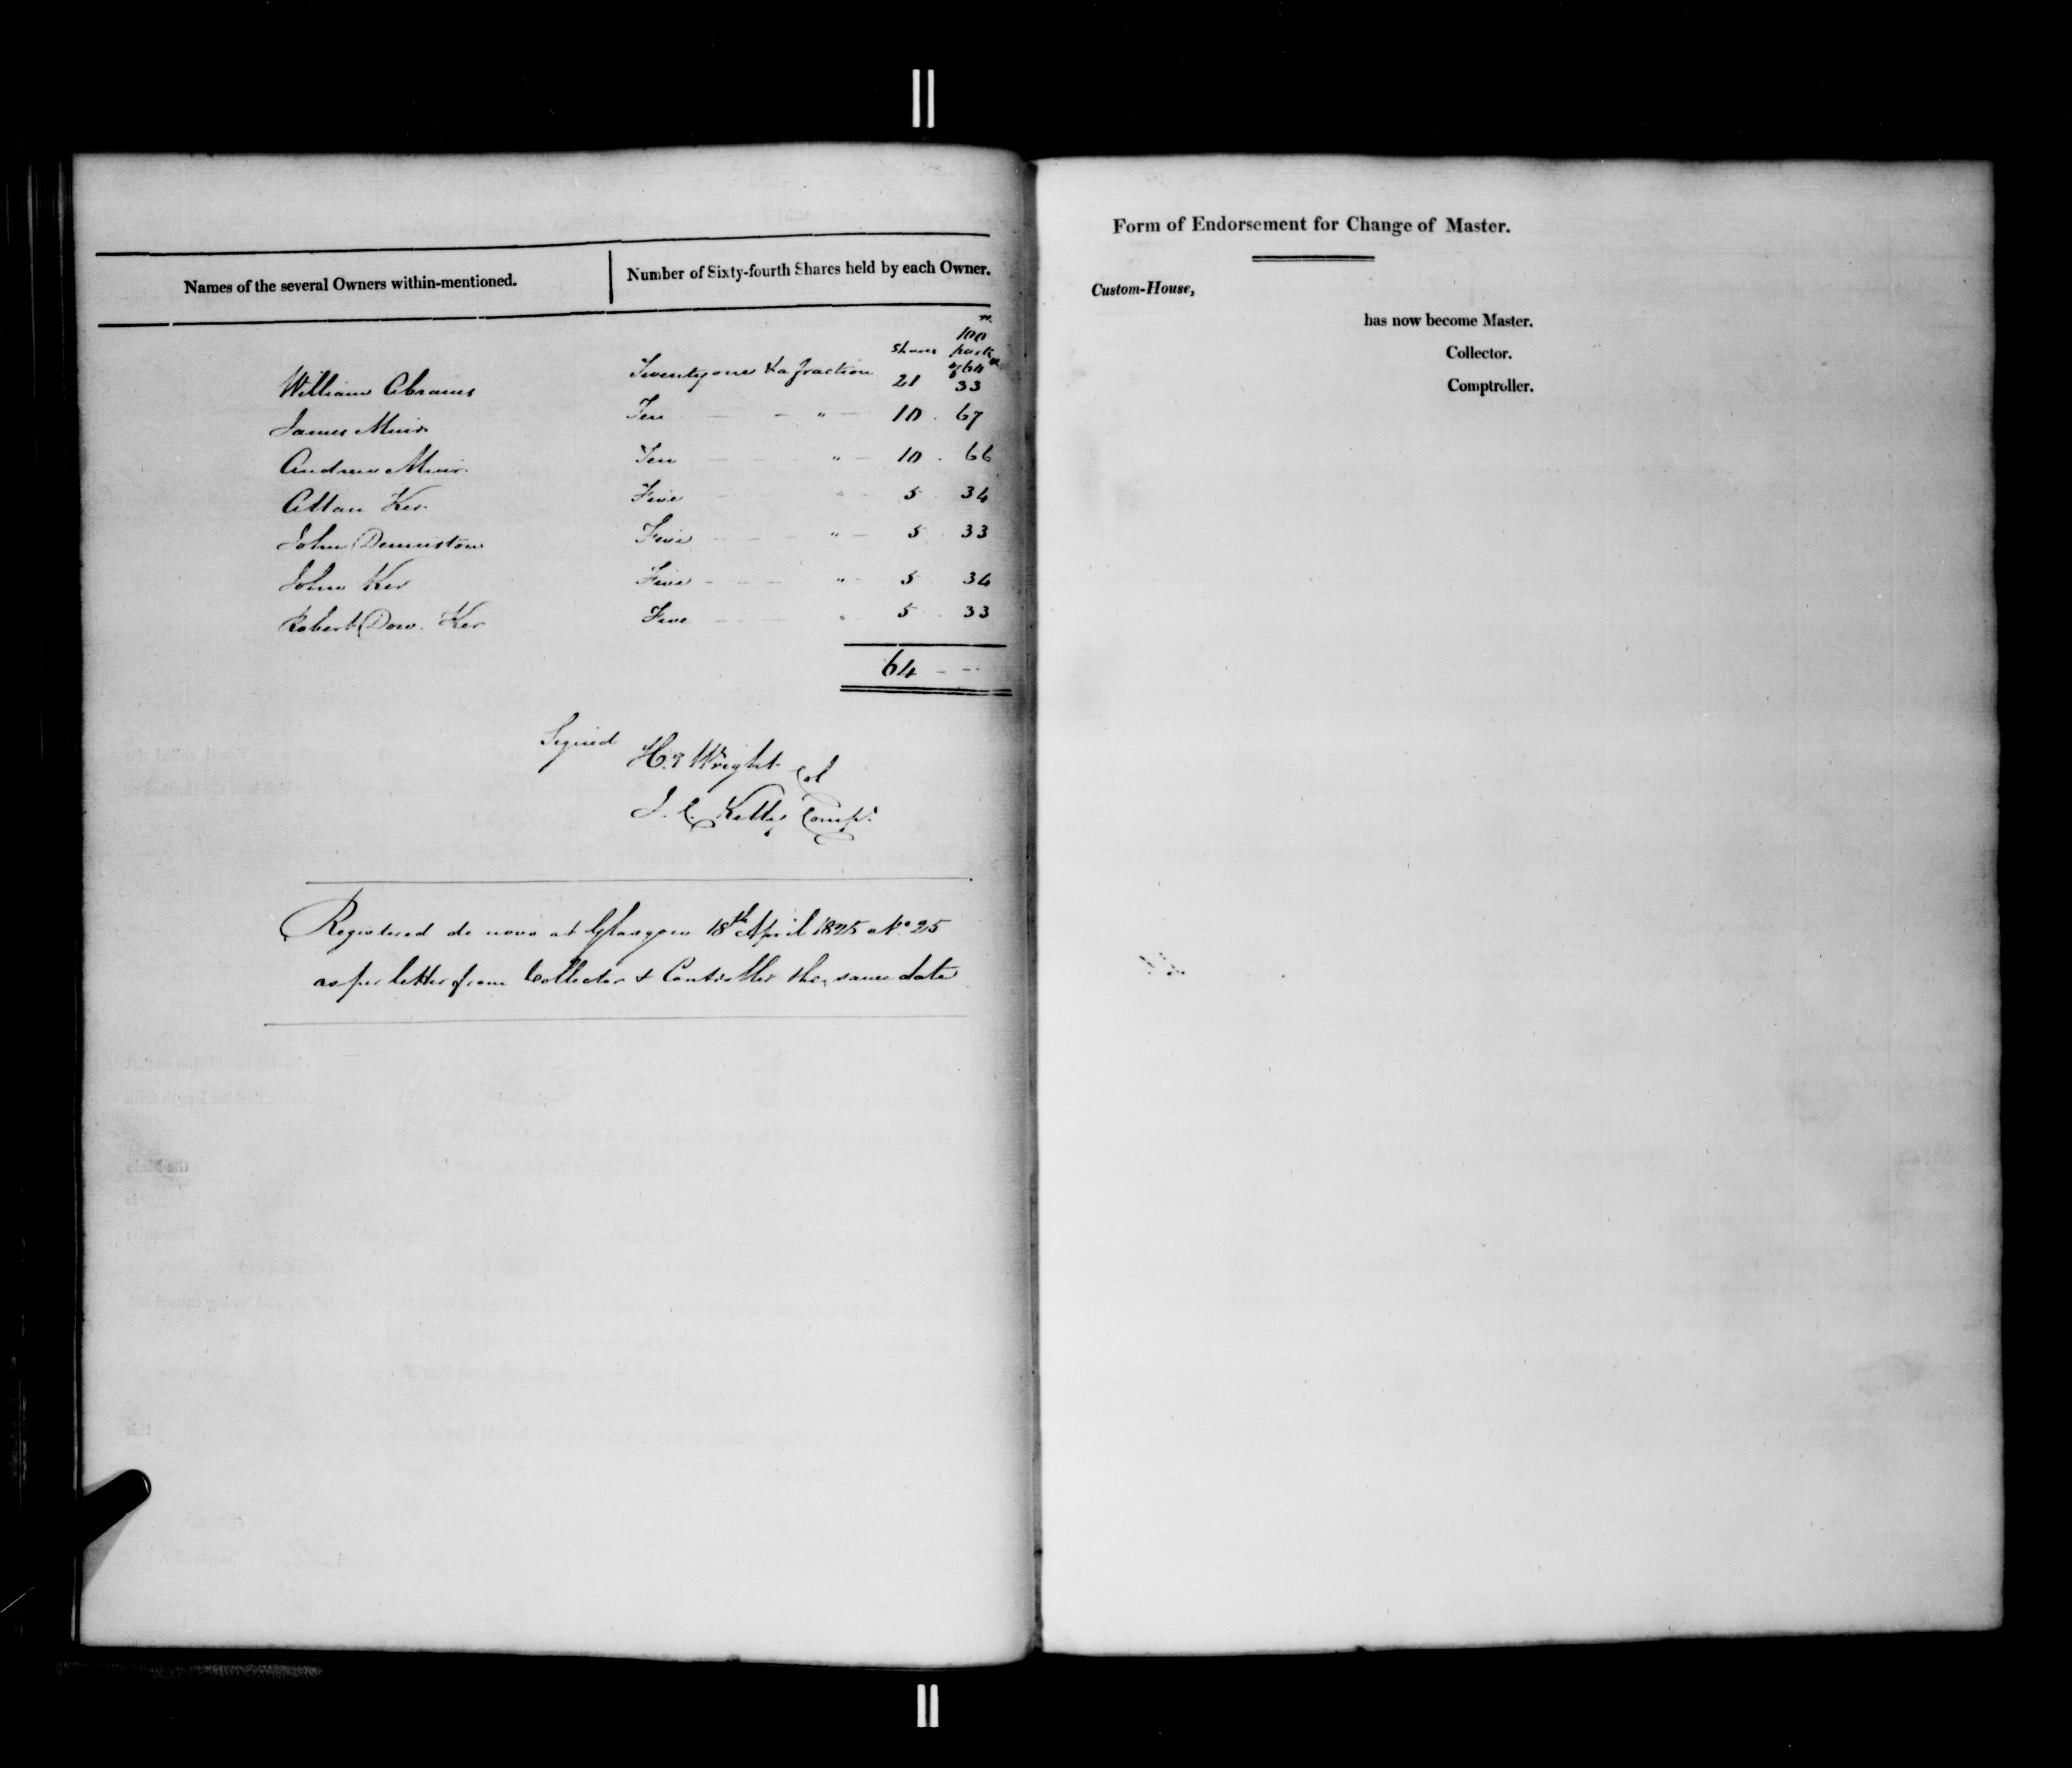 Names of the several Owners within-mentioned.
Number of Sixty-fourth Shares held by each Owner.
100
Shares parts
of 64th
William Abrams Twenty one & a fraction 21 33
James Muir Ten — — " — 10 . 67
Andrew Muir Ten — — " — 10 . 66
Allan Ker Five — " — 5 . 34
John Denniston Five — — — " — 5 . 33
John Ker Five — — — " — 5 . 34
Robert Dow. Ker Five — — " — 5 . 33
64 — —
Signed
Hy Wright Col
J. C. Kelly Compr.
Registered de novo at Glasgow 18th April 1825 No. 25
as per letter from Collector & Controller the same date
Form of Endorsement for Change of Master.
Custom-House,
has now become Master.
Collector.
Comptroller.